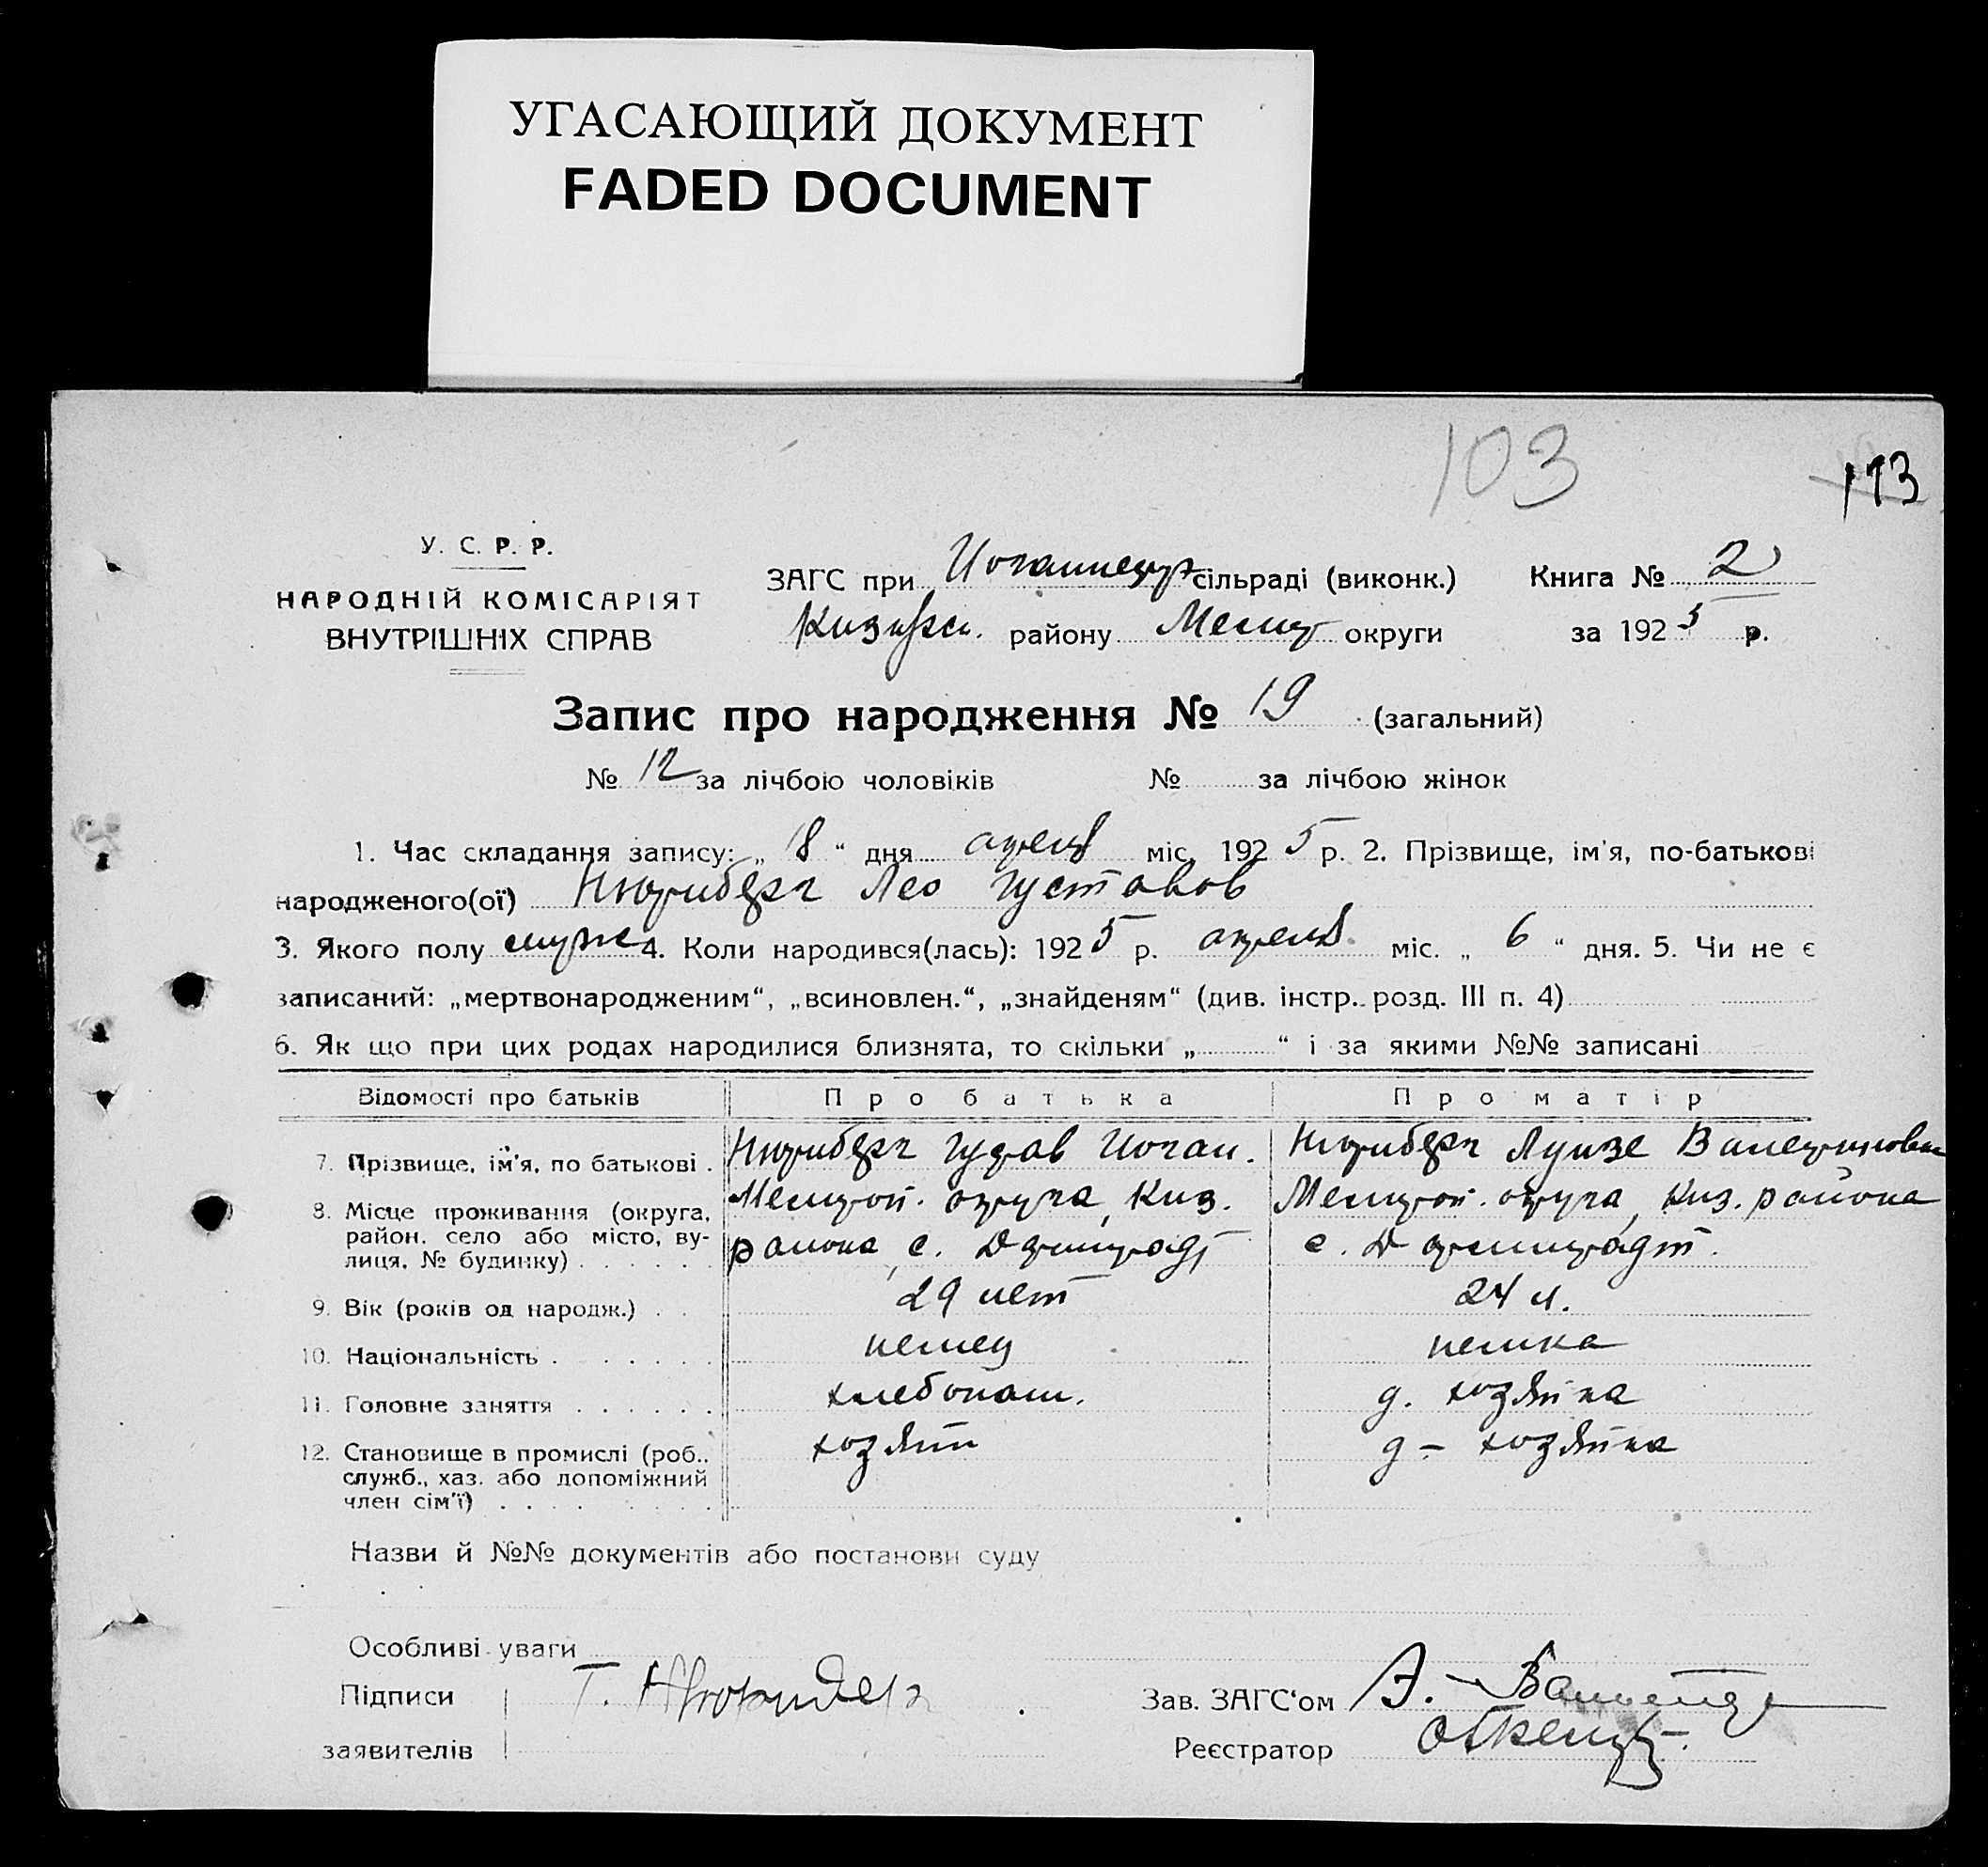 УГАСАЮЩИЙ ДОКУМЕНТ
FADED DOCUMENT
103
173
У. С. Р. Р.
НАРОДНІЙ КОМІСАРІЯТ
ВНУТРІШНІХ СПРАВ
ЗАГС при сільраді (виконк.) Книга № 2
району Мелит округи за 1925 р.
Запис про народження № 19 (загальний)
№ 12 за лічбою чоловіків № за лічбою жінок
1. Час складання запису: „ 8 “ дня апреля міс. 1925 р. 2. Прізвище, ім'я, по-батькові
народженого(ої) Нюриберг Лео Густавов
3. Якого полу муж 4. Коли народився(лась): 1925 р. апреля міс. „ 6 “ дня. 5. Чи не є
записаний: „мертвонародженим“, „всиновлен.“, „знайденям“ (див. інстр. розд. III п. 4)
6. Як що при цих родах народилися близнята, то скільки „ “ і за якими №№ записані
Відомості про батьків Про батька Про матір
7. Прізвище, ім'я, по батькові . Нюриберг Густав Иоган. Нюриберг Луизе
8. Місце проживання (округа, район. село або місто, вулиця, № будинку) . . . . . .
Мелитоп. округа, Киз. Мелитоп. округа, Киз. района
района, с. Дармштадт с. Дармштадт.
9. Вік (років од народж.) . . 29 лет 24 л.
10. Національність . . . . . . . немец немка
11. Головне заняття . . . . . . хлебопаш. д. хозяйка
12. Становище в промислі (роб.. хозяин д - хозяйка
служб., хаз. або допоміжний
член сім'ї) . . . .
Назви й №№ документів або постанови суду
Особливі уваги
Підписи Г. Нюриберг Зав. ЗАГС‘ом
заявителів Реєстратор